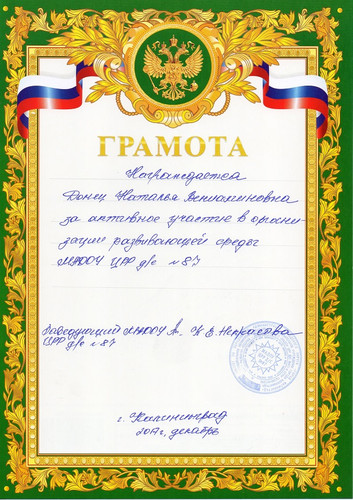 ГРАМОТА
Награждается
Донец Наталья Вениаминовна
за активное участие в органи-
зации развивающей среды
МАДОУ ЦРР д/с №87
Заведующий МАДОУ К В. Некрасова
ЦРР д/с №87
г. Калининград
2017г, декабрь